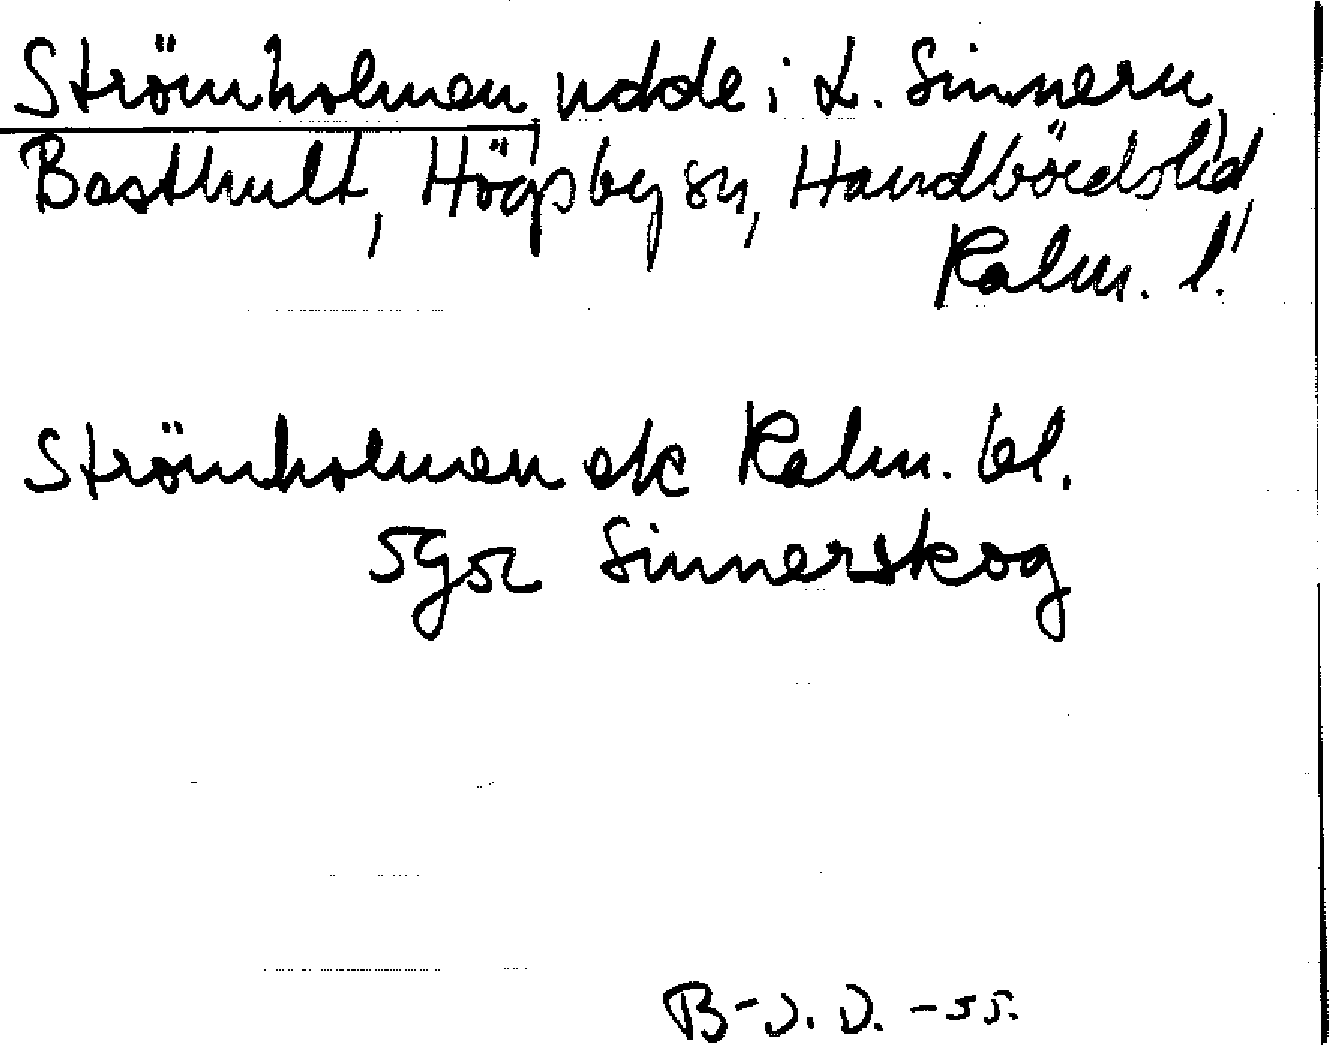 Strömholmen, udde i L. Sinnern,
Basthult, Högsby sn, Handbörds hd,
Kalm. l.
Strömholmen ek Kalm. bl.
5g52 Sinnerskog
B-J. D. -55.